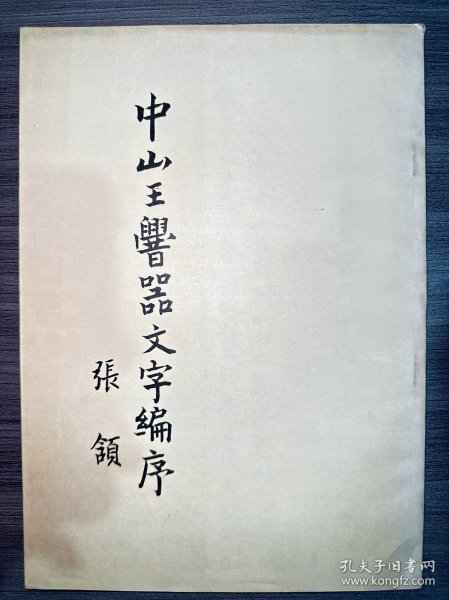 中山王器文字編序
張頷
孔夫子旧书网
www.kongfz.com